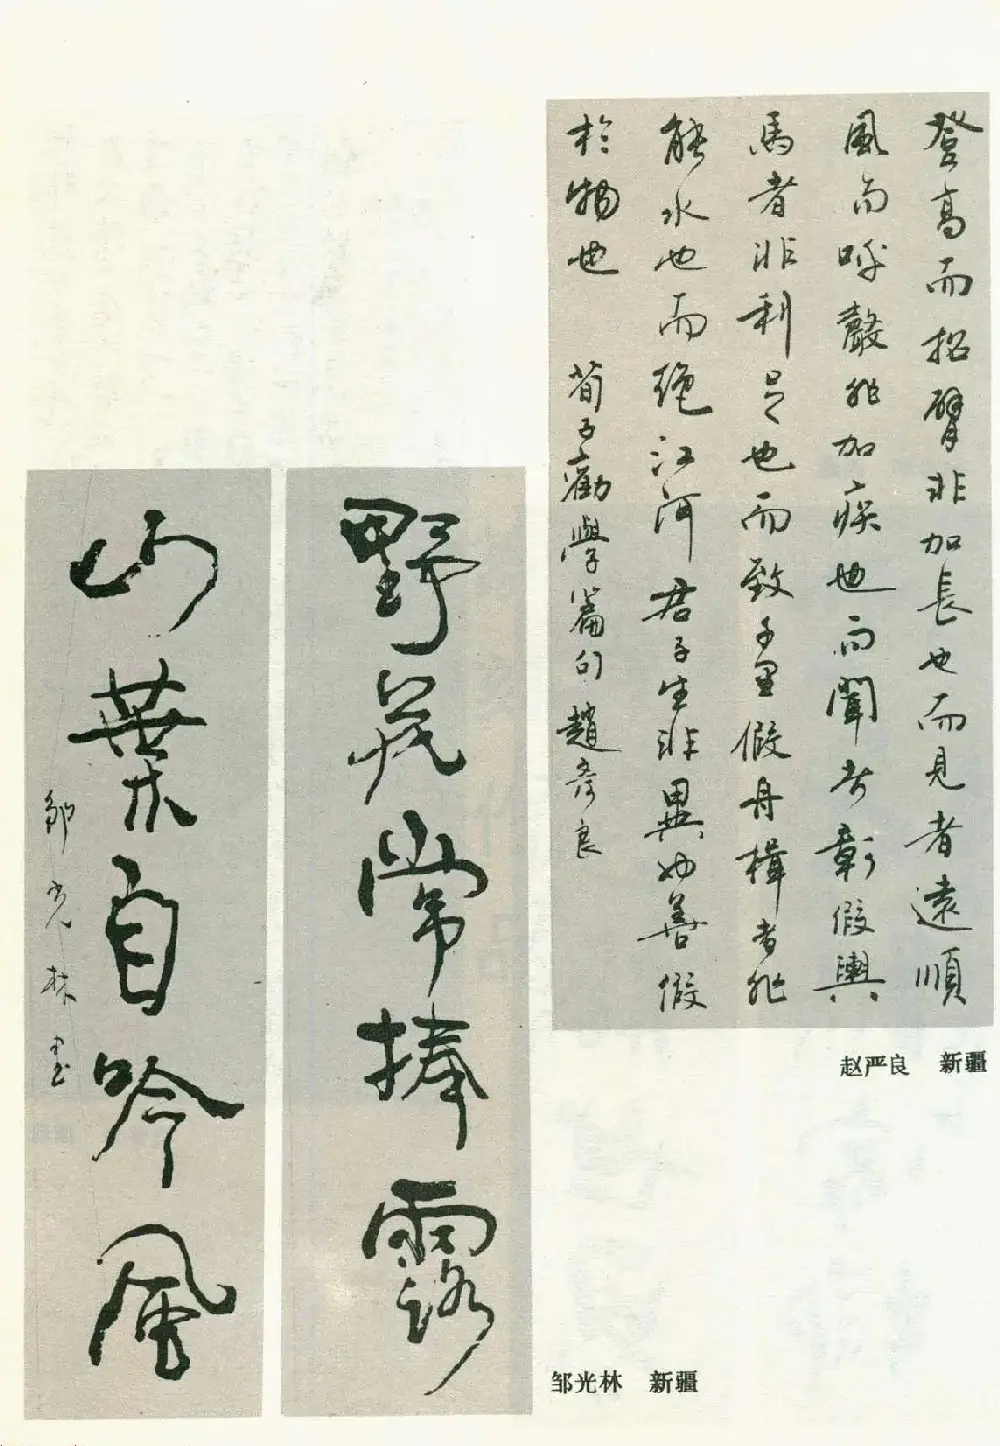 登高而招臂非加長也而見者遠順
風而呼聲非加疾也而聞者彰假輿
馬者非利足也而致千里假舟楫者非
能水也而絶江河君子生非異也善假
於物也 荀子勸學篇句 趙彦良
赵严良 新疆
野花常捧露
山葉自吟風
邹光林书
邹光林 新疆